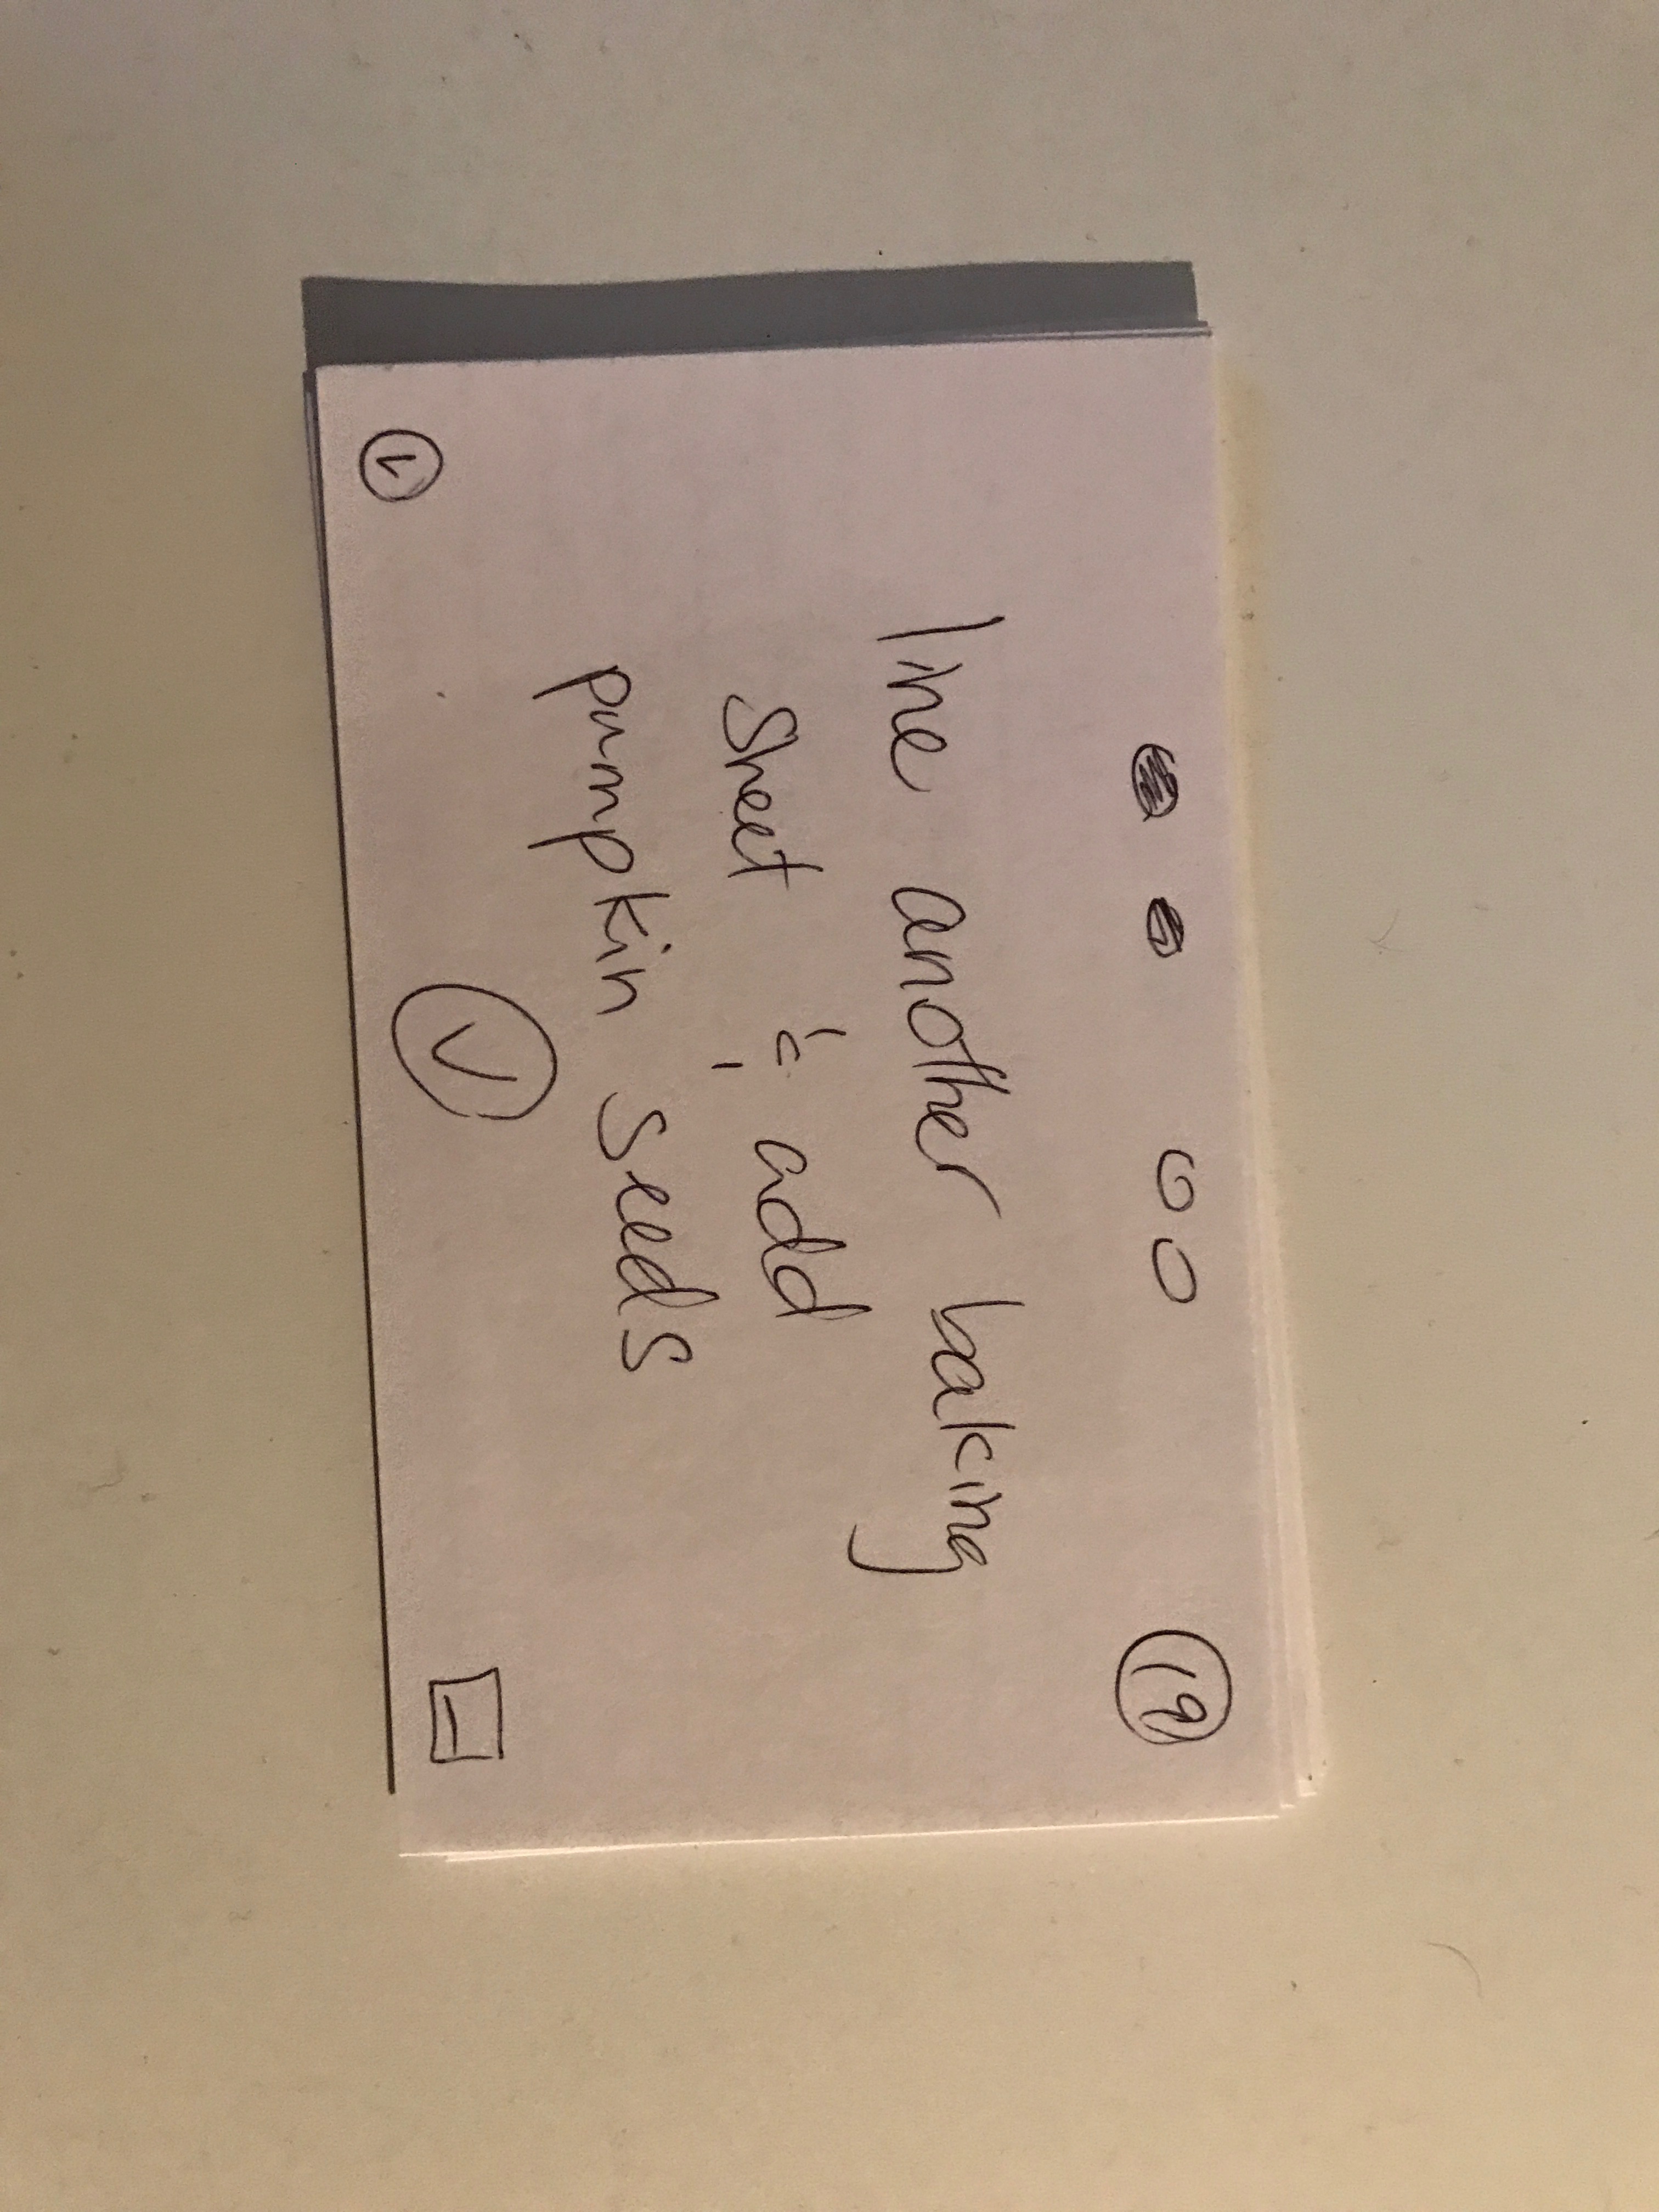 19
line another baking
sheet & add
pumpkin seeds
V